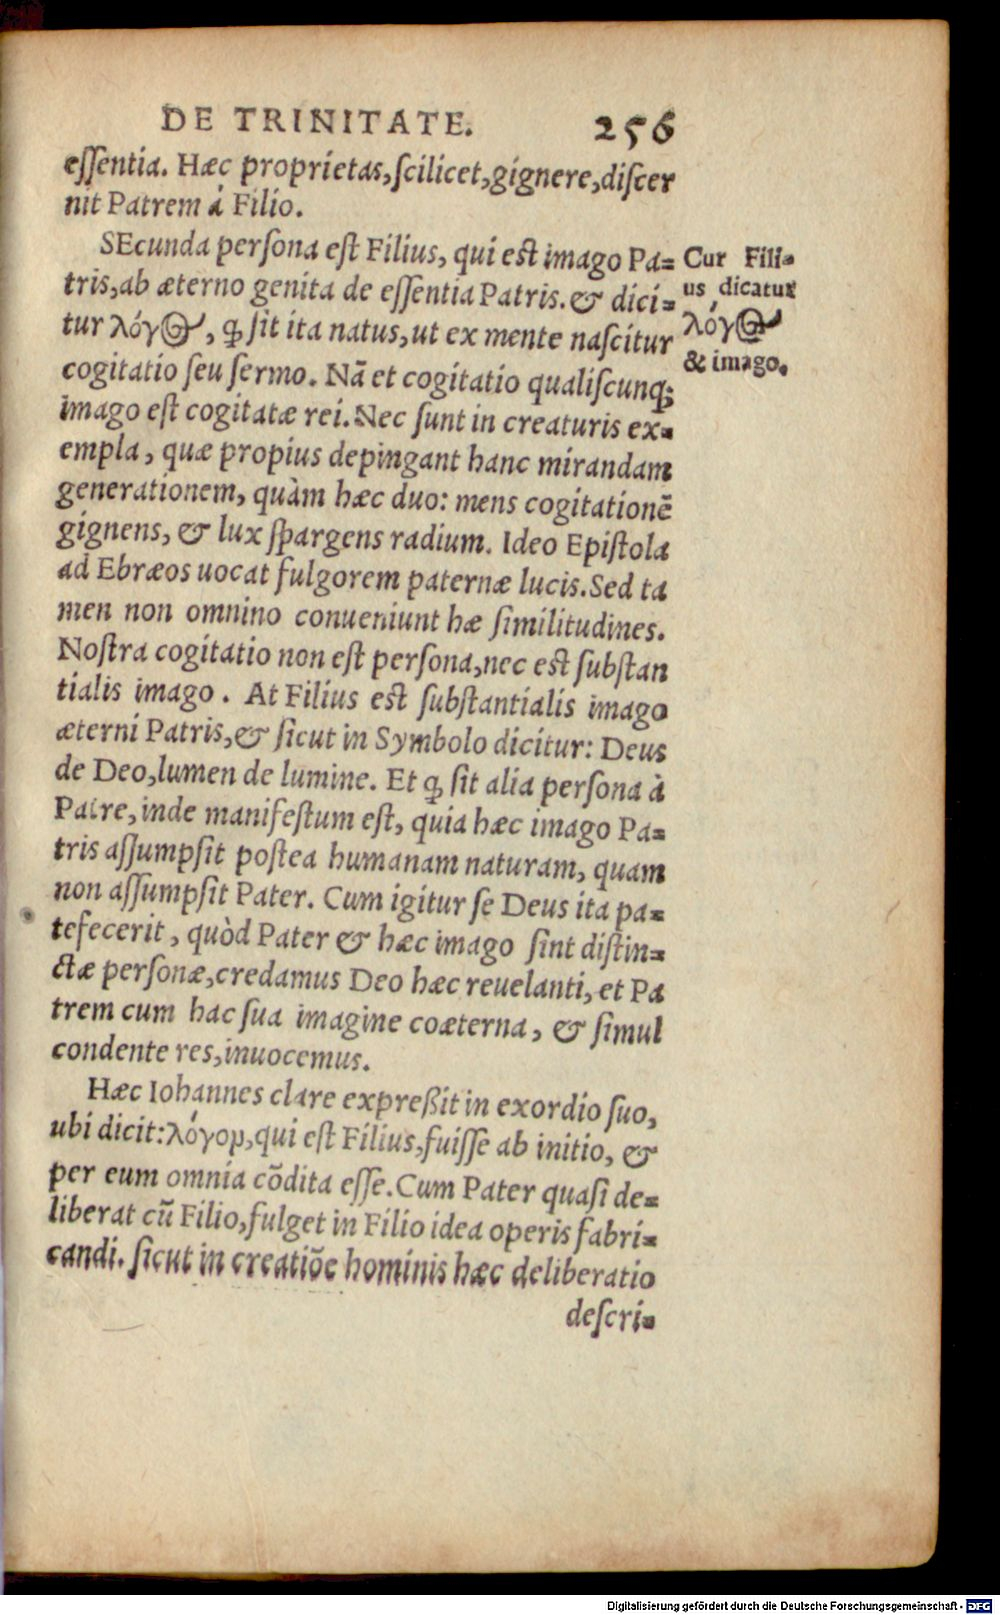 DE TRINITATE. 256
eſſentia. Hæc proprietas, ſcilicet, gignere, diſcer
nit Patrem á Filio.
SEcunda perſona eſt Filius, qui est imago Pa=
tris, ab æterno genita de eſſentia Patris. & dici=
tur λόγος, ꝙ ſit ita natus, ut ex mente naſcitur
cogitatio ſeu ſermo. Nã et cogitatio qualiſcunq;
imago eſt cogitatæ rei. Nec ſunt in creaturis ex=
empla, quæ propius depingant hanc mirandam
generationem, quàm hæc duo: mens cogitationẽ
gignens, & lux ſpargens radium. Ideo Epiſtola
ad Ebræos uocat fulgorem paternæ lucis. Sed ta
men non omnino conueniunt hæ ſimilitudines.
Noſtra cogitatio non eſt perſona, nec eſt ſubſtan
tialis imago. At Filius eſt ſubſtantialis imago
æterni Patris, & ſicut in Symbolo dicitur: Deus
de Deo, lumen de lumine. Et ꝙ ſit alia perſona à
Patre, inde manifeſtum eſt, quia hæc imago Pa=
tris aſſumpſit poſtea humanam naturam, quam
non aſſumpſit Pater. Cum igitur ſe Deus ita pa=
tefecerit, quòd Pater & hæc imago ſint diſtin=
ctæ perſonæ, credamus Deo hæc reuelanti, et Pa
trem cum hac ſua imagine coæterna, & ſimul
condente res, inuocemus.
Hæc Iohannes clare expreßit in exordio ſuo,
ubi dicit: λόγον, qui eſt Filius, fuiſſe ab initio, &
per eum omnia cõdita eſſe. Cum Pater quaſi de=
liberat cũ Filio, fulget in Filio idea operis fabri=
candi. ſicut in creatiõe hominis hæc deliberatio
deſcri=
Cur Fili=
us dicatur
λόγος
& imago.
Digitalisierung gefördert durch die Deutsche Forschungsgemeinschaft - DFG